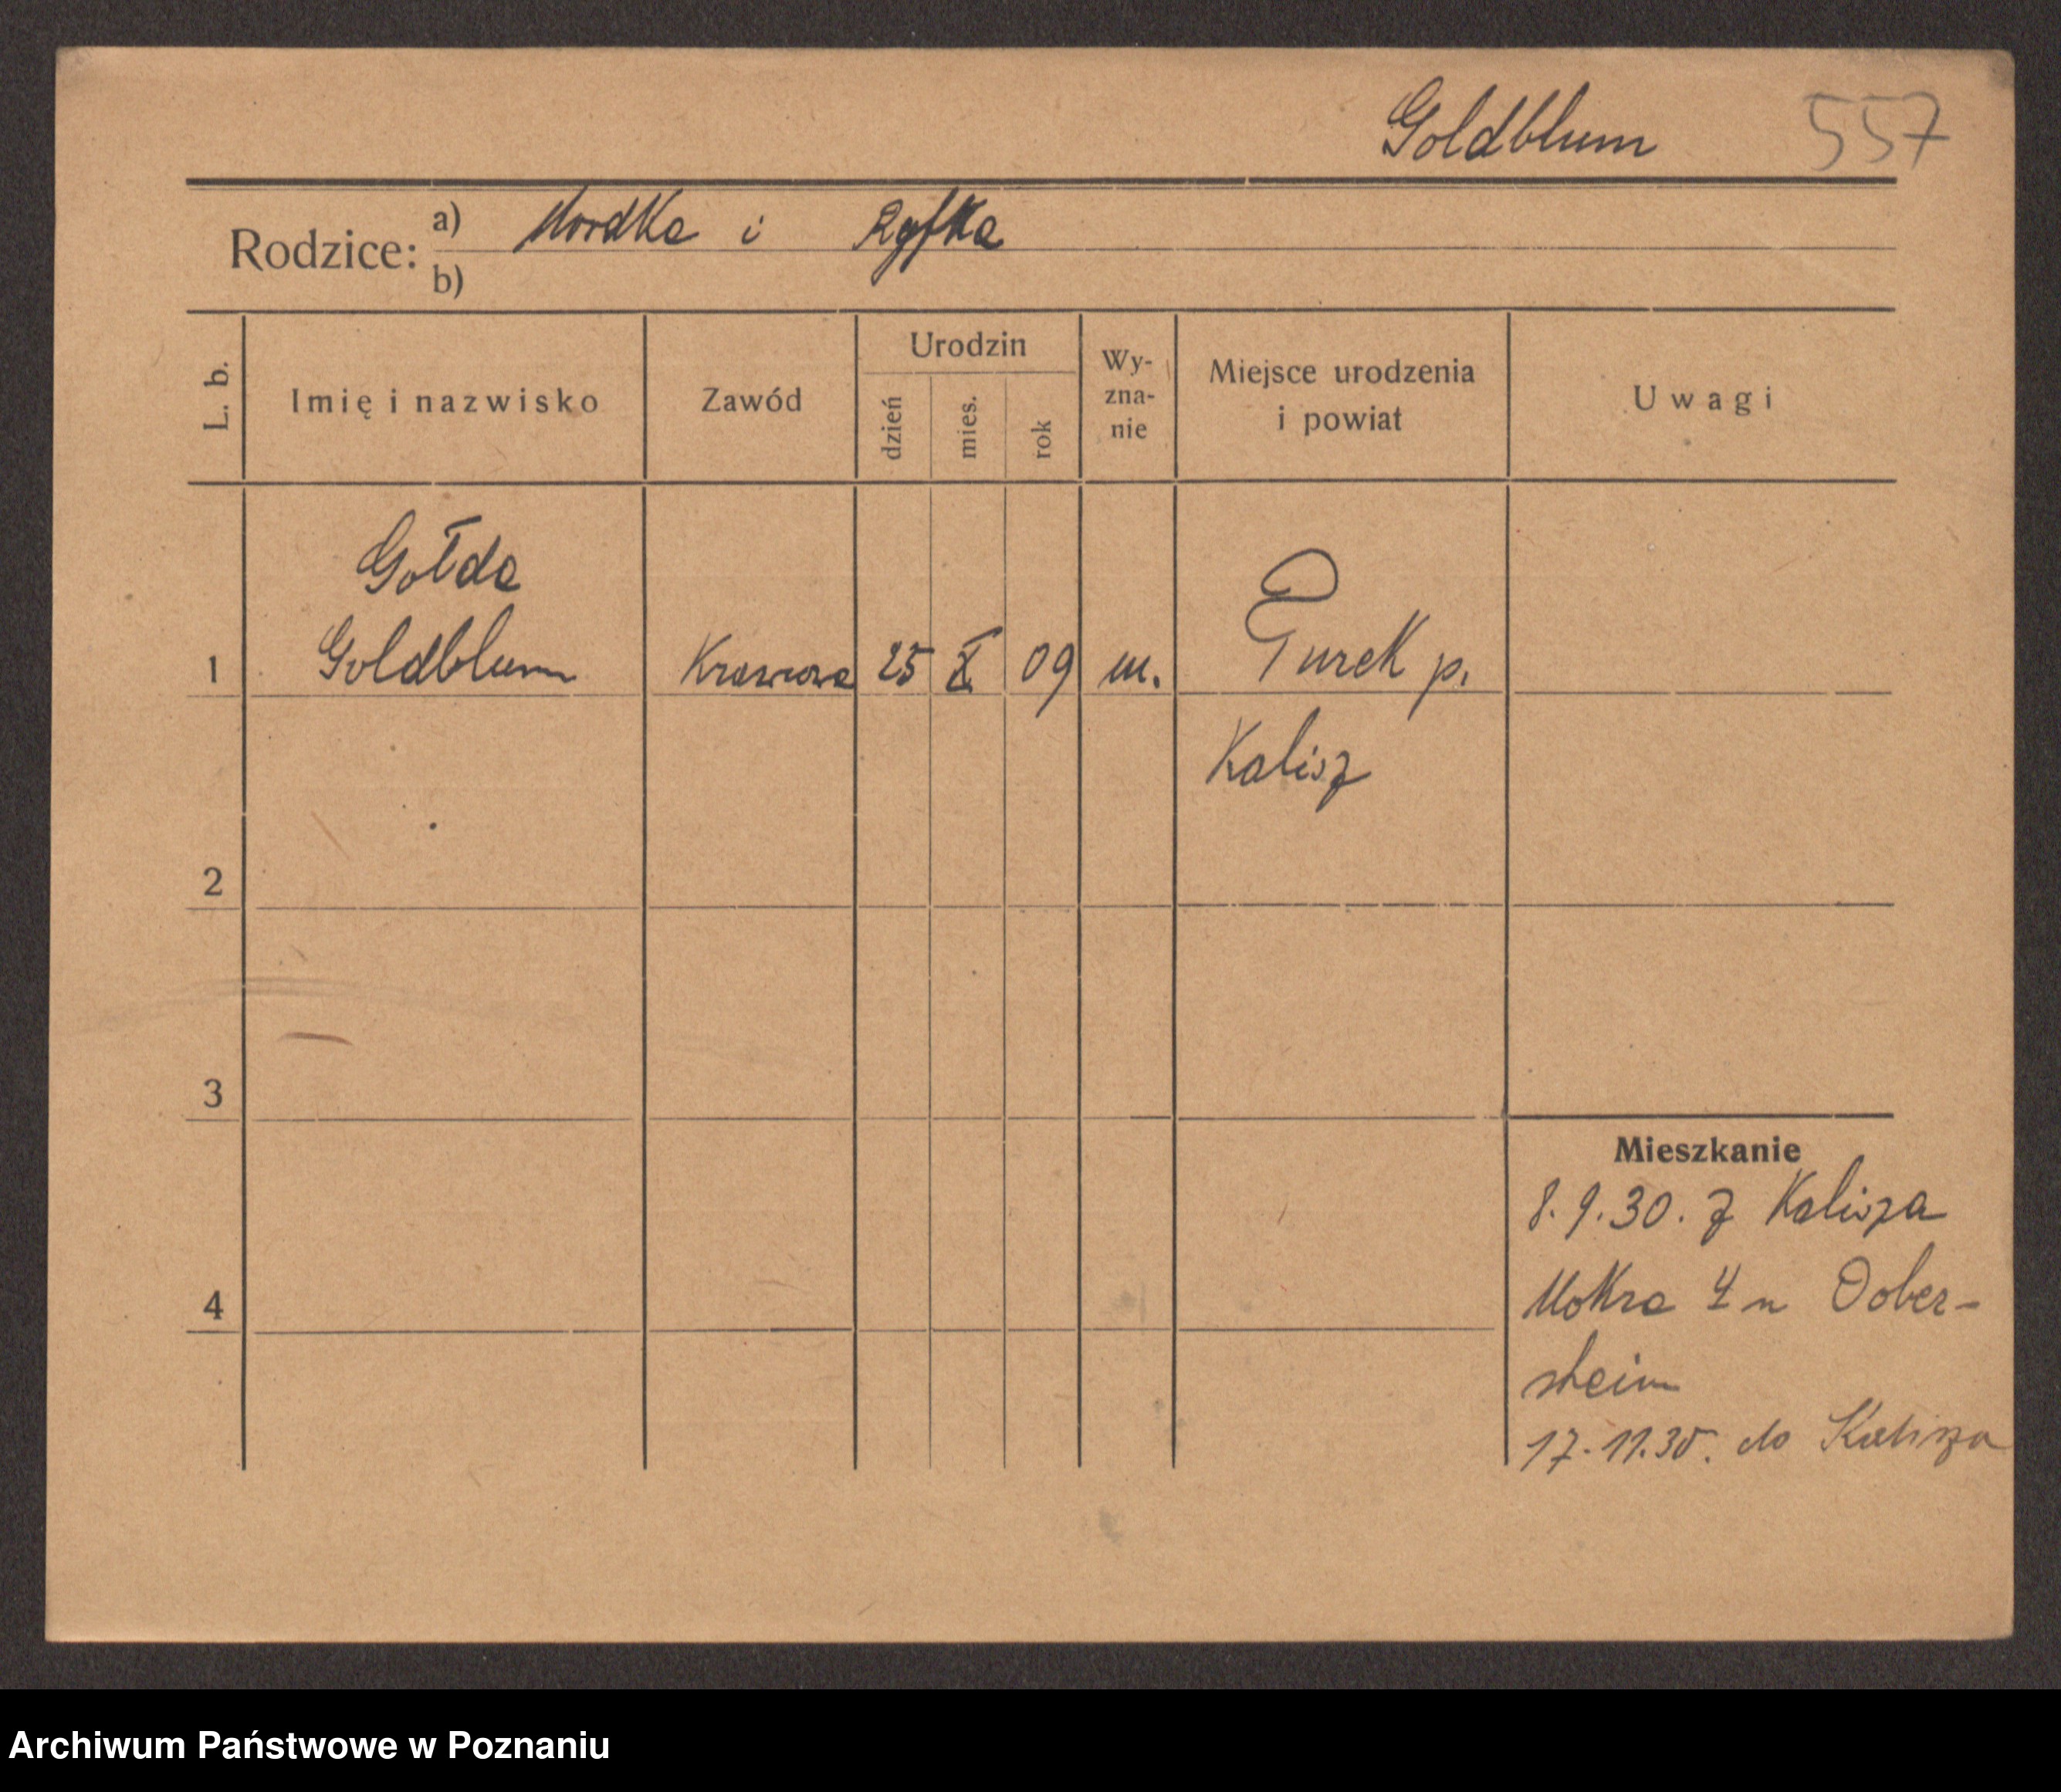 Goldblum 557
Rodzice: a) Mordka i Ryfka
b)
L. b. Imię i nazwisko Zawód Urodzin dzień mies. rok Wy-zna-nie Miejsce urodzenia i powiat Uwagi
Gołda
1 Goldblum Krawcowa 25 X 09 m. Turek p.
Kalisz
2
3
Mieszkanie
8.9.30. z Kalisza
4 Mokra 4 u Dober-
stein
17.11.30. do Kalisza
Archiwum Państwowe w Poznaniu